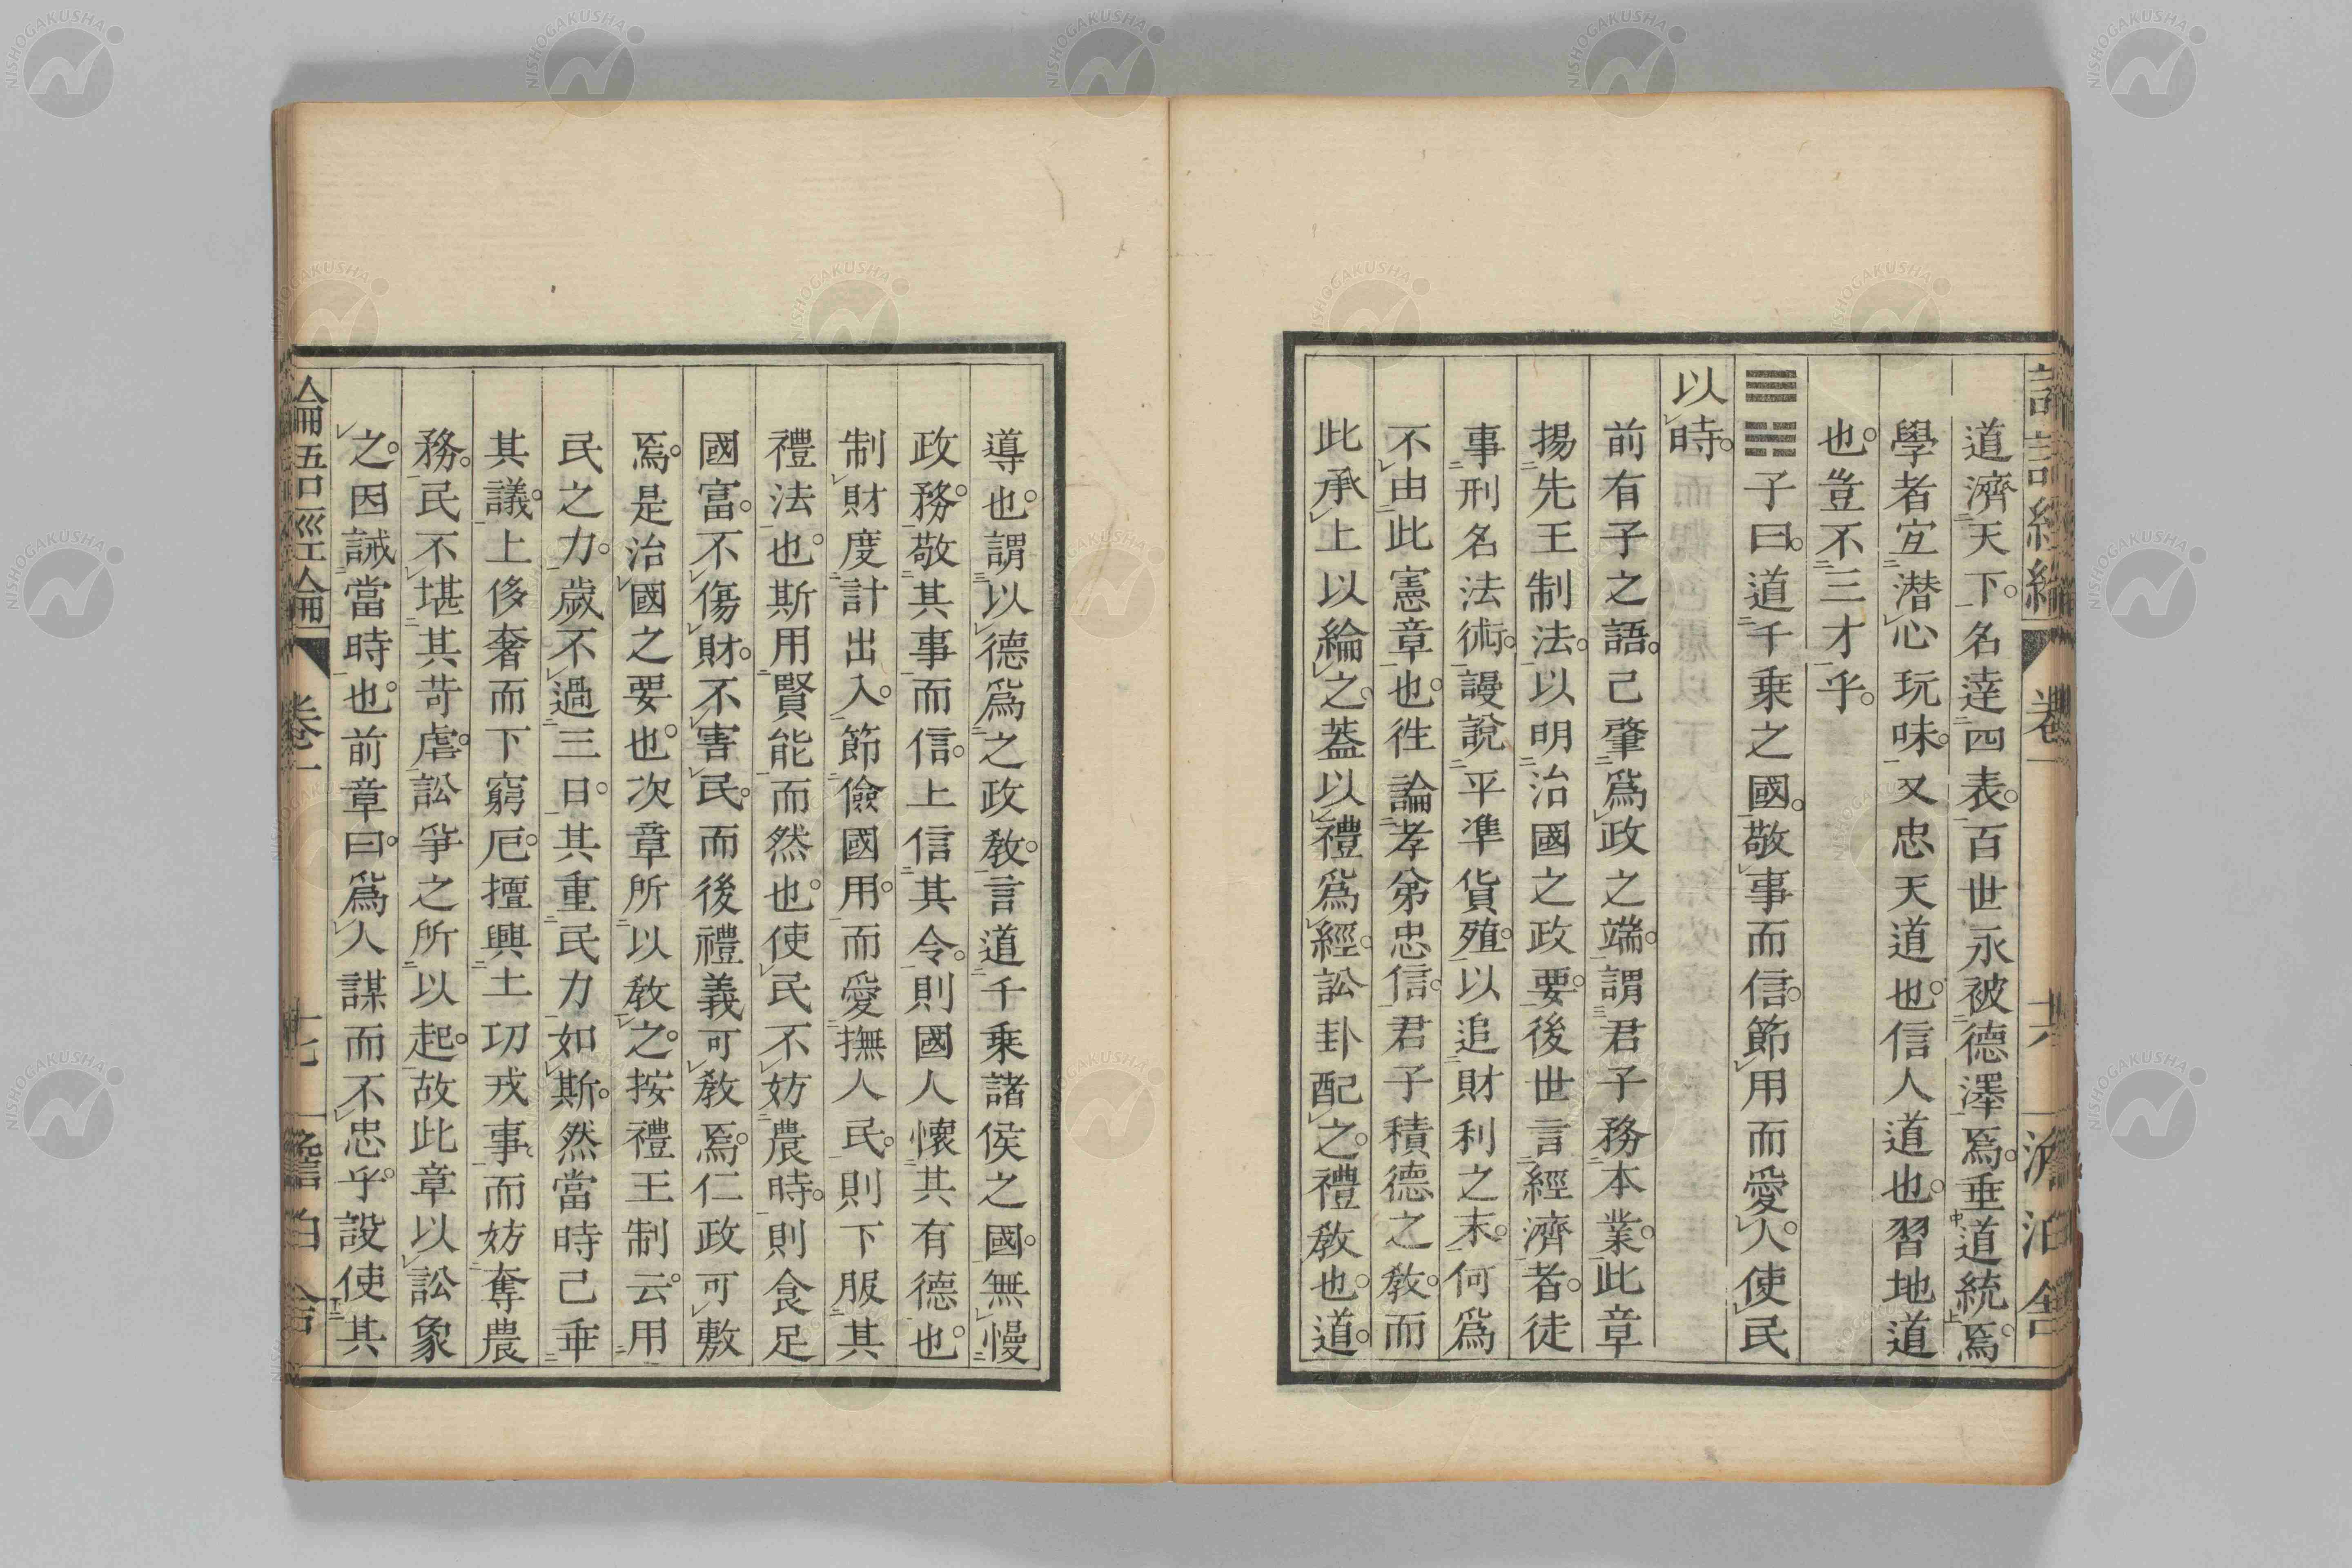 道濟天下。名達四表。百世永被德澤焉。垂道統焉。
學者宜潛心玩味。又忠天道也。信人道也。習地道
也。豈不三才乎。
䷅子曰。道千乗之國。敬事而信。節用而愛人。使民
以時。
前有子之語。己肇爲政之端。謂君子務本業。此章
揚先王制法。以明治國之政要。後世言經濟者。徒
事刑名法術。謾說平準貨殖。以追財利之末。何爲
不由此憲章也。徃論孝弟忠信。君子積德之敎。而
此承上以綸之。葢以禮爲經。訟卦配之。禮敎也。道。
導也。謂以德爲之政敎。言道千乗諸侯之國。無慢
政務。敬其事而信。上信其令。則國人懷其有德也。
制財度計出入。節儉國用。而愛撫人民。則下服其
禮法也。斯用賢能而然也。使民不妨農時。則食足
國富。不傷財。不害民。而後禮義可敎焉。仁政可敷
焉。是治國之要也。次章所以敎之。按禮王制云。用
民之力。歲不過三日。其重民力如斯。然當時己乖
其議。上侈奢而下窮厄。擅興土功戎事。而妨奪農
務。民不堪其苛虐。訟爭之所以起。故此章以訟象
之。因誡當時也。前章曰。爲人謀而不忠乎。設使其
論語經綸 卷一 十七 澹泊舍